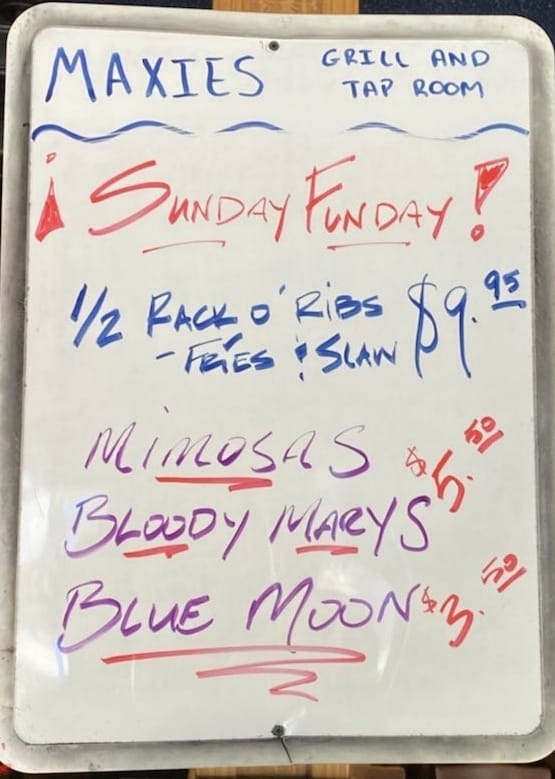 MAXIES
GRILL AND
TAP ROOM
¡ SUNDAY FUNDAY!
1/2 RACK O' RIBS $9.95
- FRIES & SLAW
MIMOSAS
BLOODY MARYS $5.50
BLUE MOON $3.50